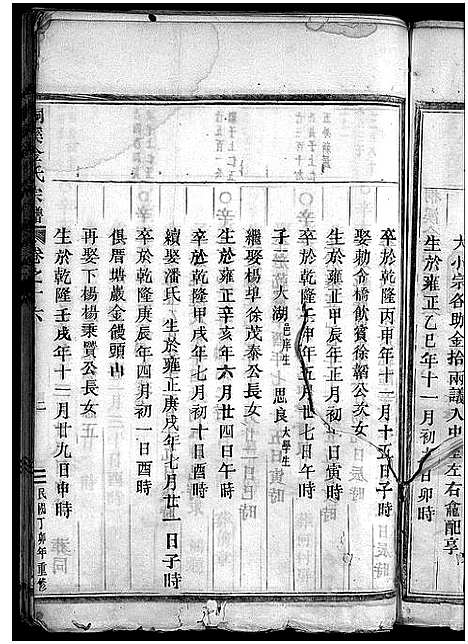 大小宗各助金拾兩議入中堂左右龕配享
生於雍正乙巳年十一月初九日卯時
卒於乾隆丙申年十二月十五日子時
娶勅令橋飲賓徐韜公次女
生於雍正甲辰年正月初四日寅時
卒於乾隆壬申年五月廿七日午時
子二 大湖邑庠生 思良大學生
繼娶楊埠徐茂泰公長女
生於雍正辛亥年六月廿四日午時
卒於乾隆甲戌年七月初十日酉時
續娶潘氏 生於雍正庚戌年七月廿一日子時
卒於乾隆庚辰年四月初一日酉時
俱厝塘巖金饅頭山
再娶下楊楊乘贒公長女
生於乾隆壬戌年十二月廿九日申時
氏宗譜 卷之十六
民國丁卯年重修